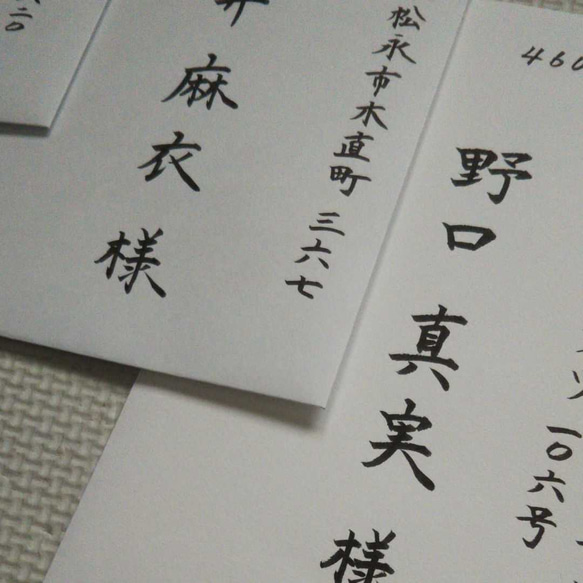 460
野口真実様
一〇六号
松永市木直町三六七
井麻衣様
二〇